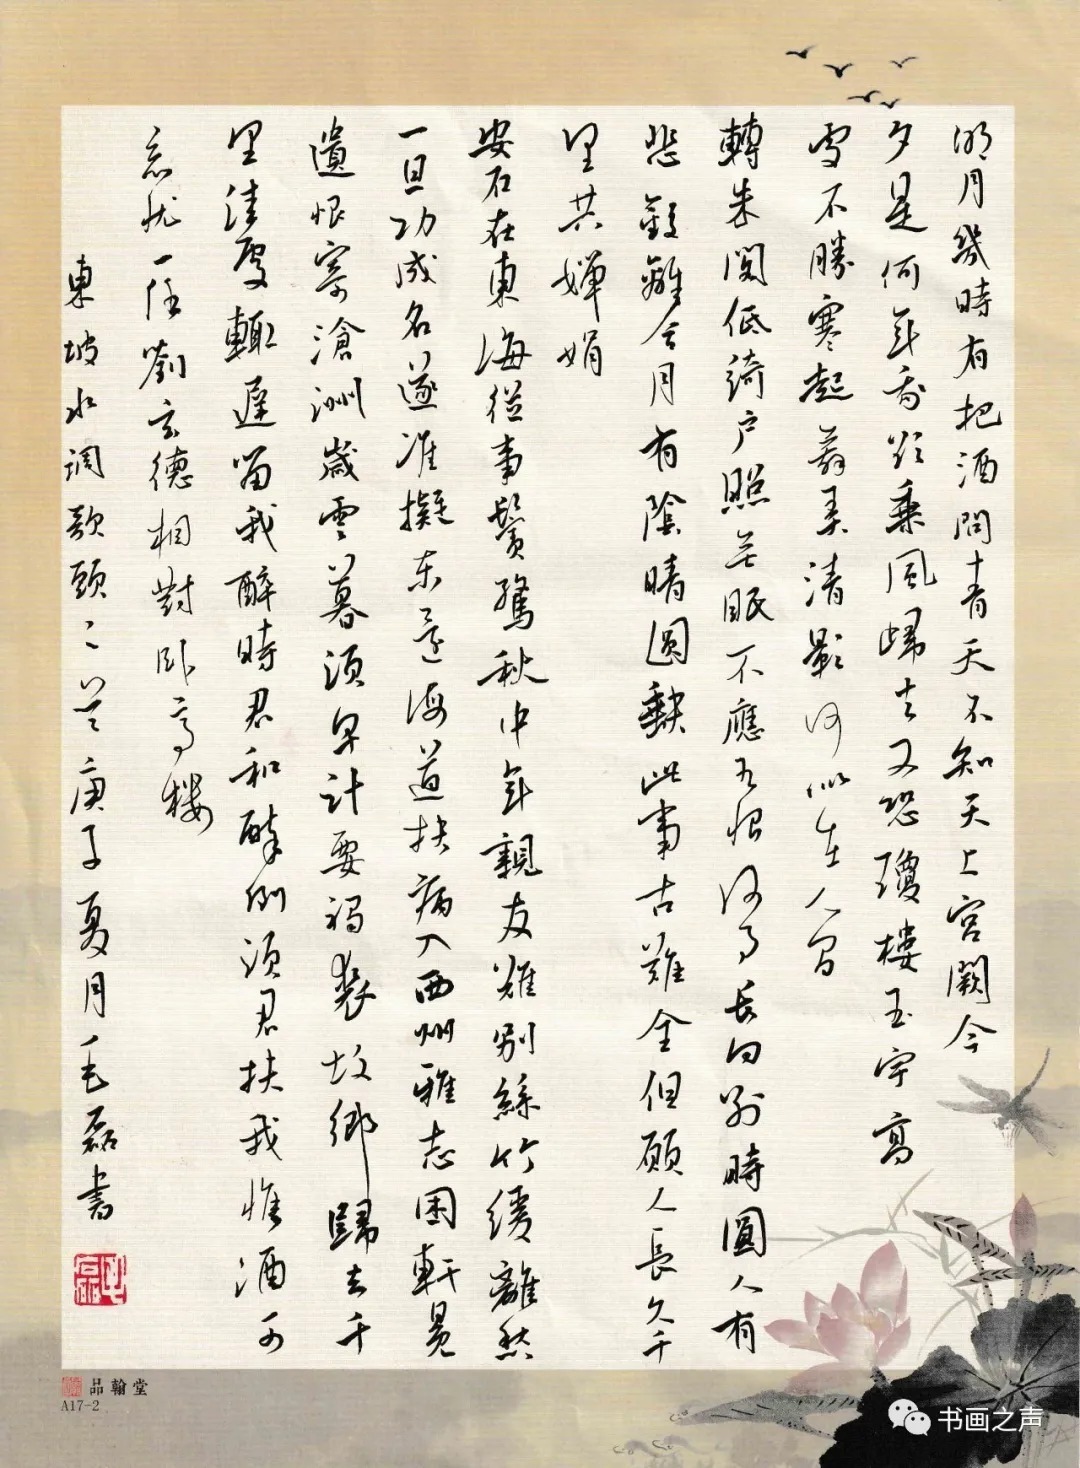 明月幾時有把酒問青天不知天上宮闕今
夕是何年我欲乘風歸去又恐瓊樓玉宇高
處不勝寒起舞弄清影何似在人間
轉朱閣低綺户照無眠不應有恨何事長向別時圓人有
悲歡離合月有陰晴圓缺此事古難全但願人長久千
里共嬋娟
安石在東海從事鬢驚秋中年親友難別絲竹緩離愁
一旦功成名遂准擬東還海道扶病入西州雅志困軒冕
遺恨寄滄洲歲雲暮須早計要褐裘故鄉歸去千
里佳處輒遲留我醉時君和醉倒須君扶我惟酒可
忘憂一任劉玄德相對卧高樓
東坡水调歌頭二首庚子夏月毛磊書
品翰堂
A17-2
书画之声